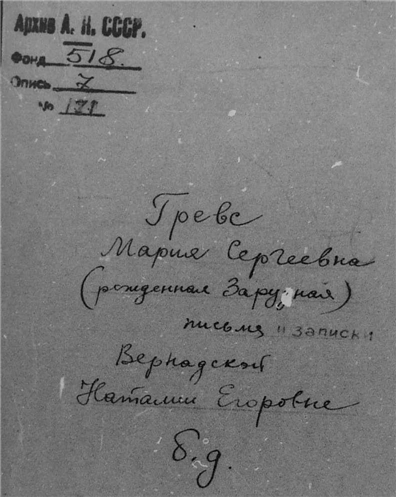 Архив А. Н. СССР.
Фонд 518.
Опись 7
№ 121
Гревс
Мария Сергеевна
(рожденная Зарудная)
письма и записки
Вернадской
Наталии Егоровне
б. д.